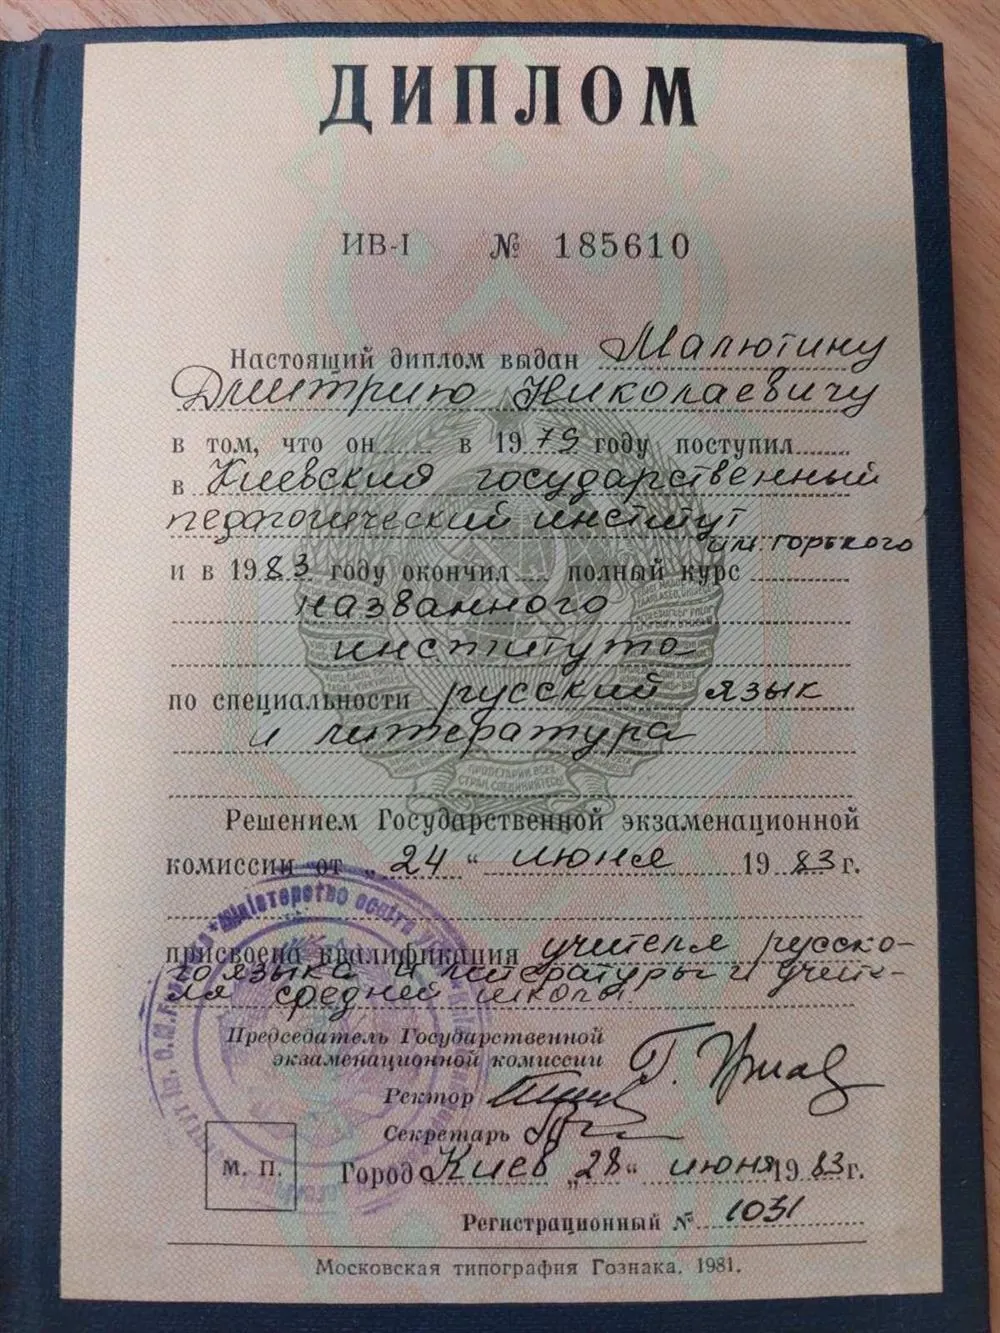 ДИПЛОМ
ИВ-I № 185610
Настоящий диплом выдан Малютину
Дмитрию Николаевичу
в том, что он в 1979 году поступил
в Киевский государственный
педагогический институт
им. Горького
и в 1983 году окончил полный курс
названного
института
по специальности русский язык
и литература
ПРОЛЕТАРИИ ВСЕХ
СТРАН, СОЕДИНЯЙТЕСЬ!
Решением Государственной экзаменационной
комиссии от „24“ июня 1983 г.
Міністерство освіти
присвоена квалификация учителя русско-
го языка и литературы и учите-
ля средней школы.
Председатель Государственной
экзаменационной комиссии
Ректор
Секретарь
М. П.
Город Киев „28“ июня 1983 г.
Регистрационный № 1031
Московская типография Гознака. 1981.